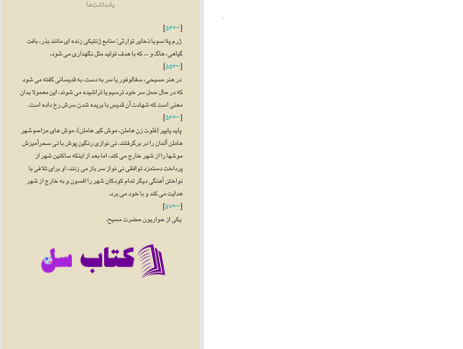 یادداشت‌ها
[←۵۴]
ژرم پلاسم یا ذخایر توارثی: منابع ژنتیکی زنده ای مانند بذر، بافت
گیاهی، هاگ و ... که با هدف تولید مثل نگهداری می شود.
[←۵۵]
در هنر مسیحی، سفالوفور یا سر به دست، به قدیسانی گفته می شود
که در حال حمل سر خود ترسیم یا تراشیده می شوند، این معمولا بدان
معنی است که شهادت آن قدیس با بریده شدن سرش رخ داده است.
[←۵۶]
پاید پایپر (فلوت زن هاملن، موش گیر هاملن)، موش های مزاحم شهر
هاملن آلمان را در برگرفتند، نی نوازی رنگین پوش با نی سحرآمیزش
موشها را از شهر خارج می کند، اما بعد از اینکه ساکنین شهر از
پرداخت دستمزد توافقی نی نواز سر باز می زنند، او برای تلافی با
نواختن آهنگی دیگر تمام کودکان شهر را افسون و به خارج از شهر
هدایت می کند و با خود می برد.
[←۵۷]
یکی از حواریون حضرت مسیح.
کتاب سل